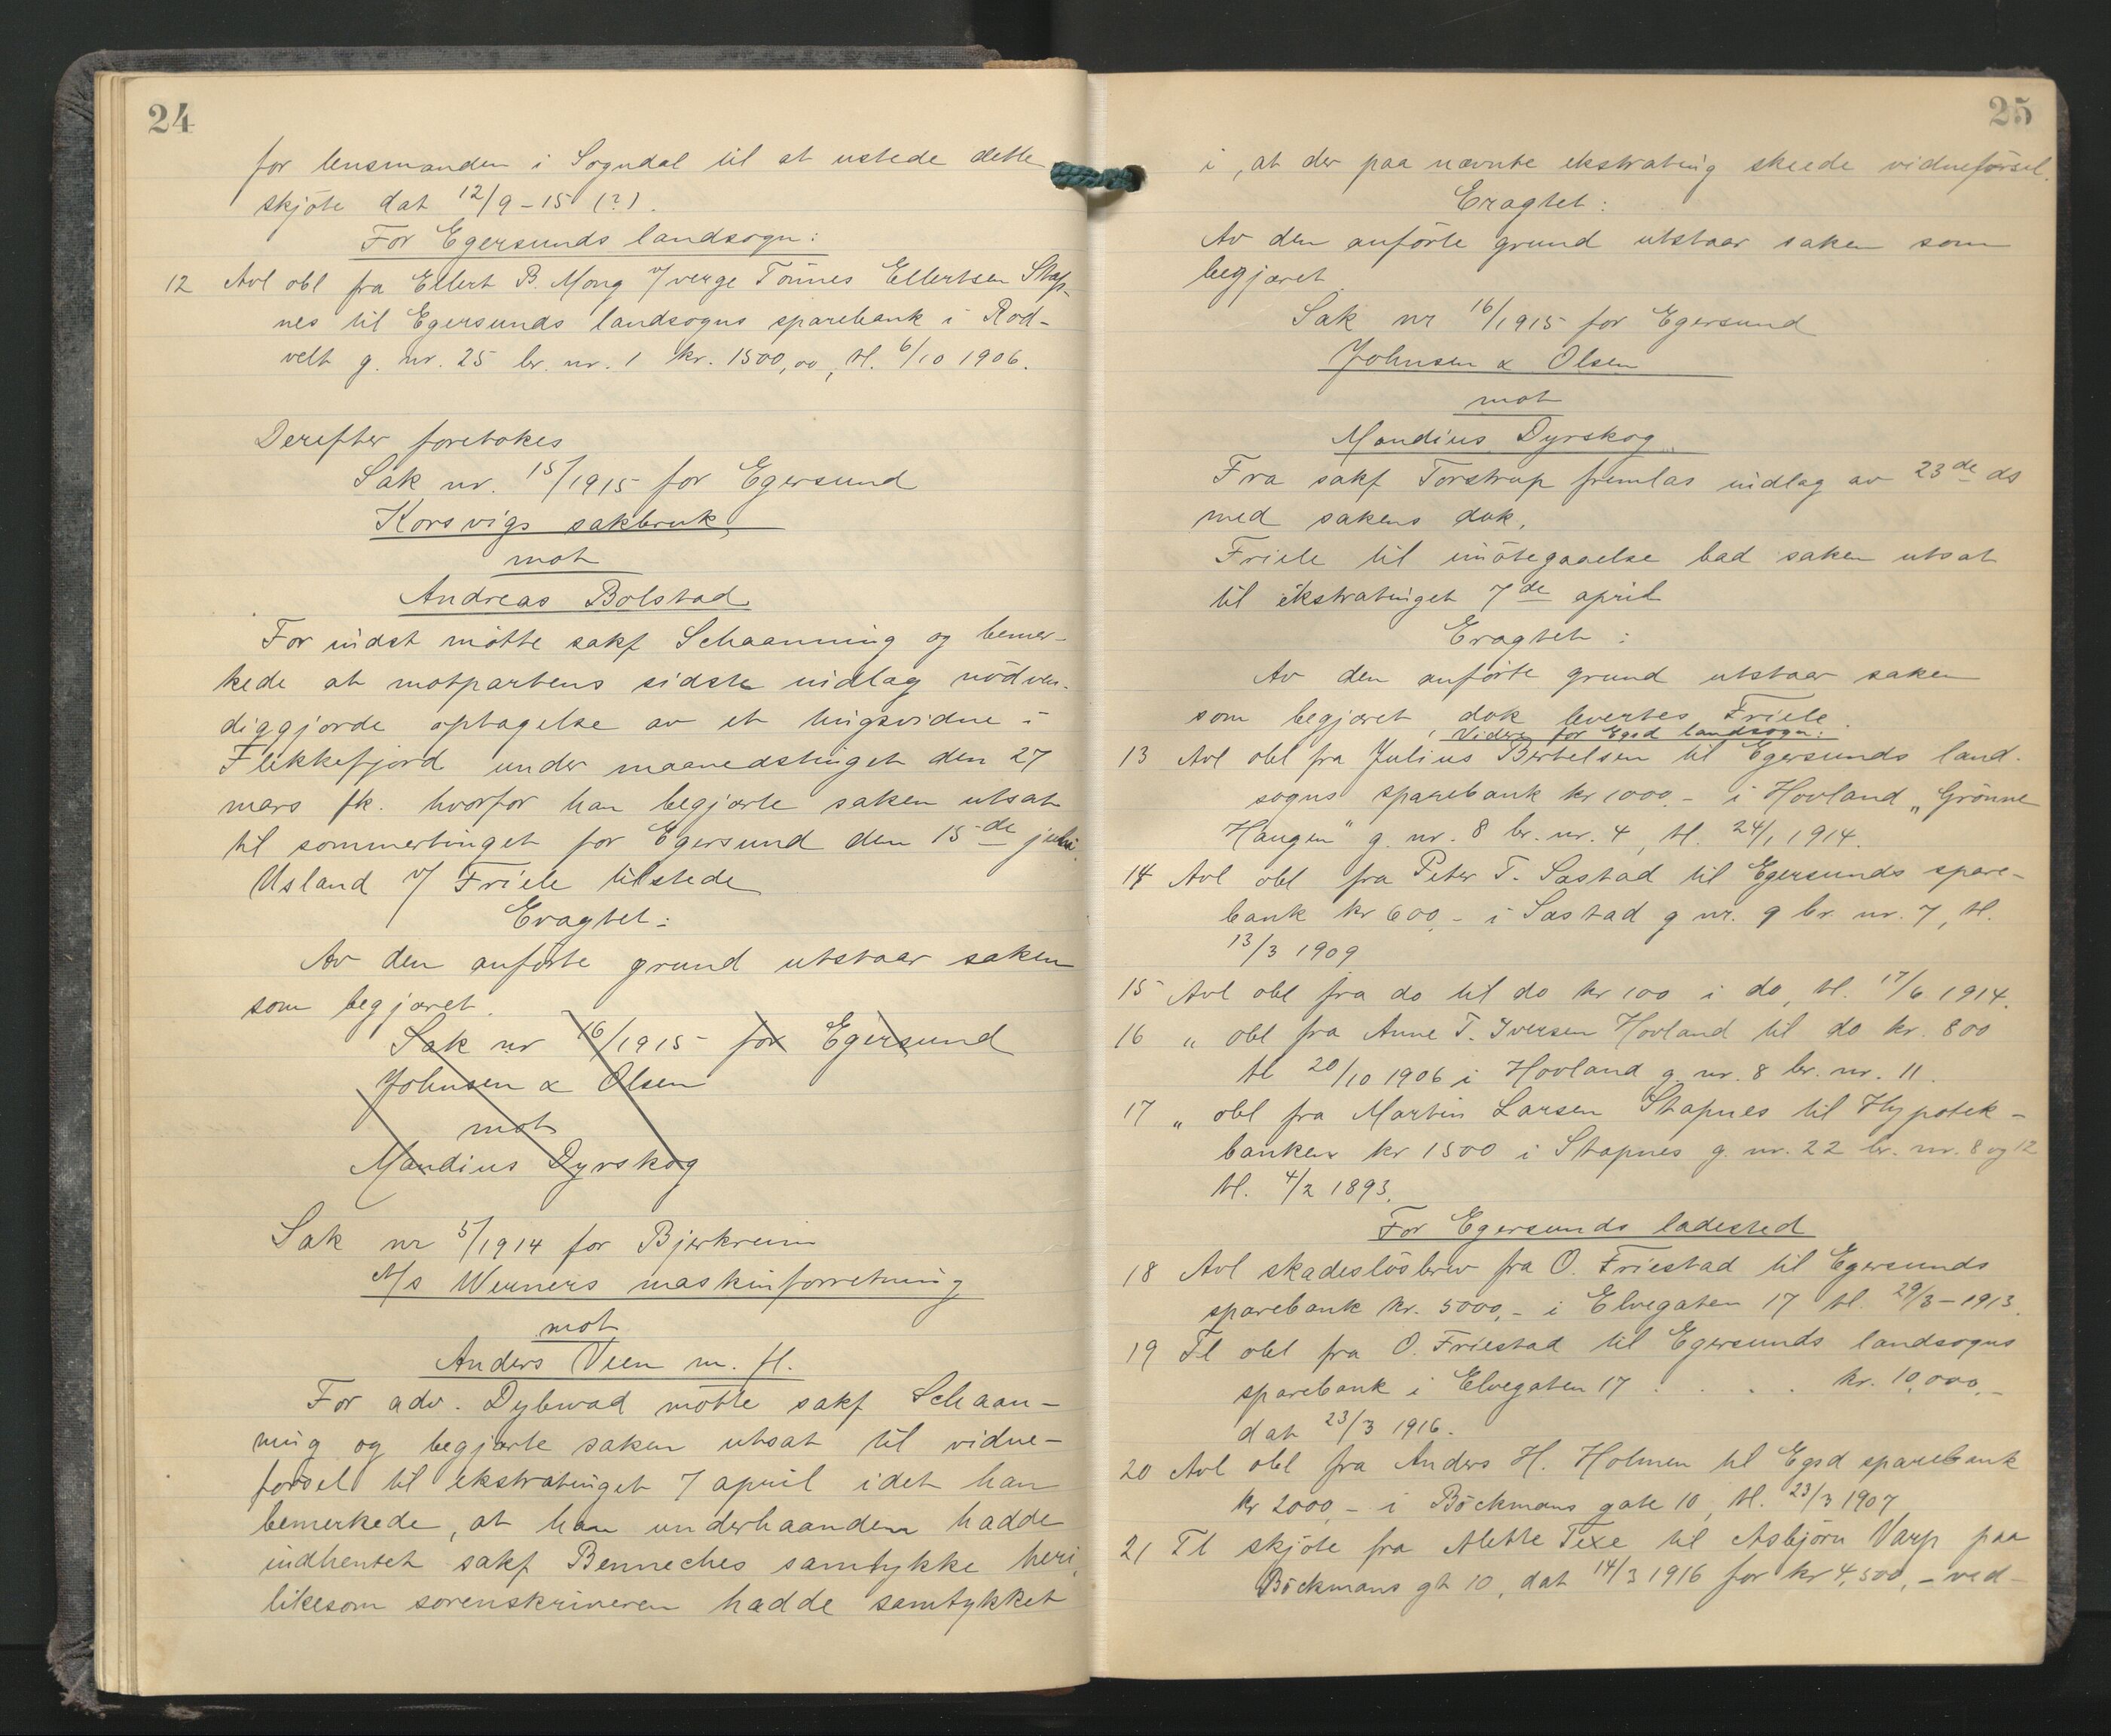 24
for lensmanden i Sogndal til at ustede dette
skjöte dat 12/9-15 (?).
For Egersunds landsogn:
12 Avl obl fra Ellert B. Mong v/ verge Tönnes Ellertsen Stap-
nes til Egersunds landsogns sparebank i Rod-
velt g. nr. 25 br. nr. 1 kr. 1500,00, tl. 6/10 1906.
Derefter foretokes
Sak nr. 15/1915 for Egersund
Korsvigs sakbruk
mot
Andreas Bolstad
For indst mötte sakf Schaanning og bemer-
kede at motpartens sidste indlag nödven-
diggjorde optagelse av et tingsvidne i
Flekkefjord under maanedstinget den 27
mars fk. hvorfor han begjærte saken utsat
til sommertinget for Egersund den 15de juli.
Usland v/ Friele tilstede
Eragtet:
Av den anförte grund utstaar saken
som begjæret.
Sak nr 16/1915 for Egersund
Johnsen & Olsen
mot
Mandius Dyrskog
Sak nr 5/1914 for Bjerkreim
A/s Werners maskinforretning
mot
Anders Veen m. fl.
For adv. Dybwad mötte sakf Schaan-
ning og begjærte saken utsat til vidne-
försel til ekstratinget 7 april idet han
bemerkede, at han underhaanden hadde
indhentet sakf Benneches samtykke heri,
likesom sorenskriveren hadde samtykket
25
i, at der paa nævnte ekstrating skeede vidneförsel.
Eragtet:
Av den anförte grund utstaar saken som
begjæret.
Sak nr 16/1915 for Egersund
Johnsen & Olsen
mot
Mandius Dyrskog
Fra sakf Torstrup fremlas indlag av 23de ds
med sakens dok.
Friele til imötegaaelse bad saken utsat
til ekstratinget 7de april
Eragtet:
Av den anförte grund utstaar saken
som begjæret, dok levertes Friele.
Videre for Egsd landsogn:
13 Avl obl fra Julius Bertelsen til Egersunds land-
sogns sparebank kr 1000,- i Hovland „Grönne
Haugen" g. nr. 8 br. nr. 4, tl. 24/1 1914.
14 Avl obl fra Peter T. Sæstad til Egersunds spare-
bank kr 600,- i Sæstad g nr. 9 br. nr. 7, tl.
13/3 1909
15 Avl obl fra do til do kr 100 i do, tl. 17/6 1914.
16 „ obl fra Anne T. Iversen Hovland til do kr. 800
tl 20/10 1906 i Hovland g. nr. 8 br. nr. 11.
17 „ obl fra Martin Larsen Stapnes til Hypotek-
banken kr 1500 i Stapnes g. nr. 22 br. nr. 8 og 12
tl. 4/2 1893.
For Egersunds ladested
18 Avl skadeslösbrev fra O. Friestad til Egersunds
sparebank kr. 5000,- i Elvegaten 17 tl. 29/3-1913.
19 Tl obl fra O. Friestad til Egersunds landsogns
sparebank i Elvegaten 17 . . . . kr. 10,000,-
dat 23/3 1916.
20 Avl obl fra Anders H. Holmen til Egsd sparebank
kr 2000,- i Böckmans gate 10, tl. 23/3 1907
21 Tl skjöte fra Mette Texe til Asbjörn Varp paa
Böckmans gt 10, dat 14/3 1916 for kr 4,500,- ved-